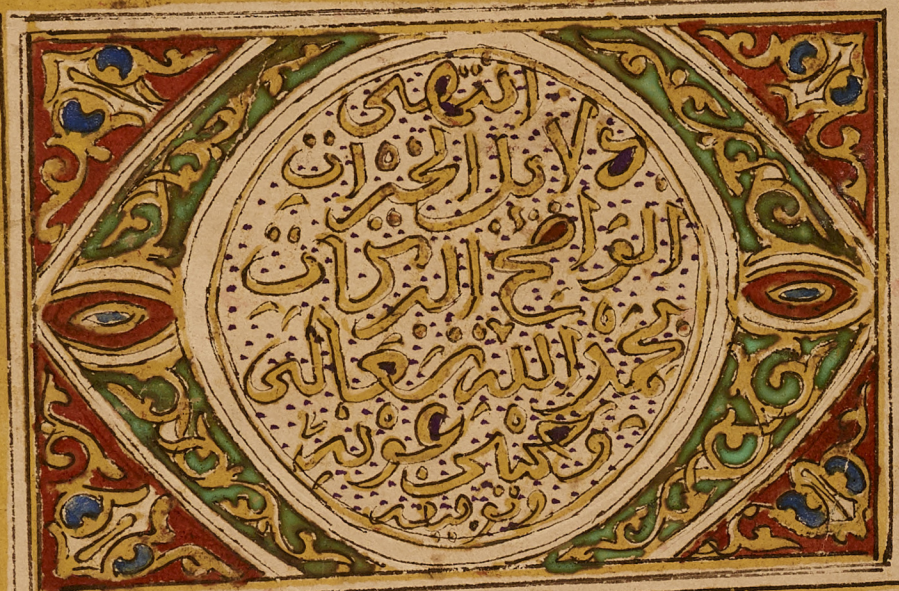 انتهى
دلايل الخيرات
الواضح البركات
بحمد الله تعالى
وحسن عونه
وتوفيقه